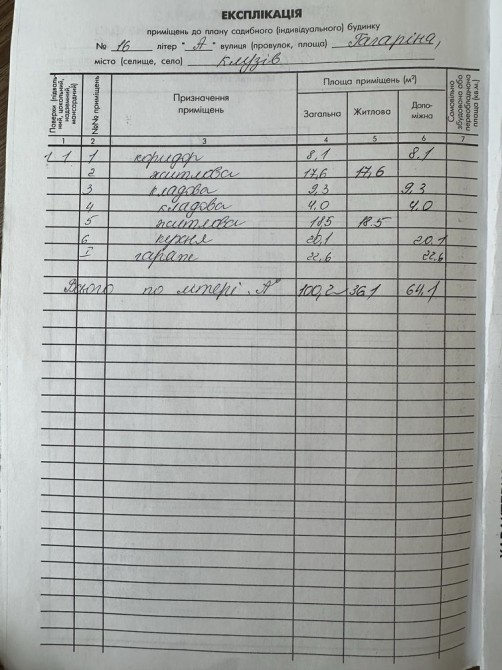 ЕКСПЛІКАЦІЯ
приміщень до плану садибного (індивідуального) будинку
№ 16 літер " А " вулиця (провулок, площа) Гагаріна,
місто (селище, село) Клузів
Поверхи (підвальний, цокольний, надземний, мансардний)
№№ приміщень
Призначення приміщень
Площа приміщень (м²)
Загальна Житлова Допоміжна
Самовільно збудована або переобладнана площа (кв.м.)
1 2 3 4 5 6 7
1 1 коридор 8,1 8.1
2 житлова 17,6 17,6
3 кладова 9,3 9.3
4 кладова 4.0 4.0
5 житлова 18,5 18.5
6 кухня 20,1 20.1
I гараж 22,6 22,6
Всього по літері "А" 100,2 36,1 64,1